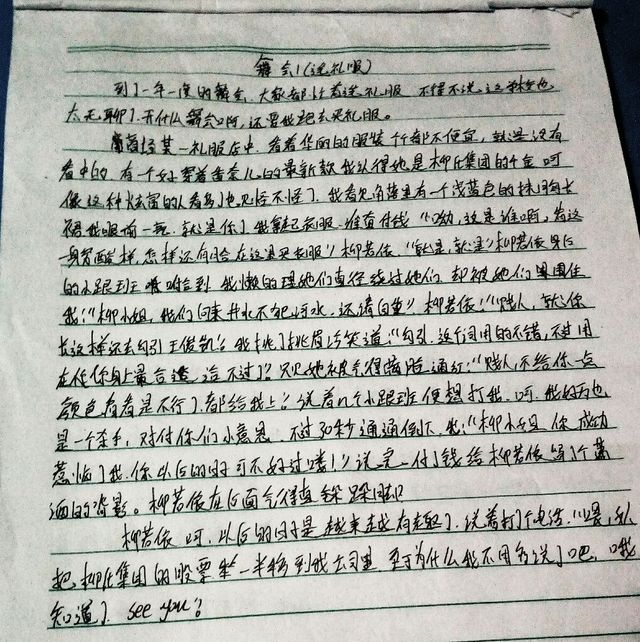 舞会1(选礼服)
到了一年一度的舞会,大家都计着选礼服,不得不说这学校也
太无聊了,开什么舞会啊,还要我起去买礼服。
商场某一礼服店中,看着华丽的服装个个都不便宜,就是没有
看中的,有一个女穿着香奈儿的最新款我认得她是柳氏集团的千金,呵
像这种炫富的人看多了也见怪不怪了,我看见角落里有一个浅蓝色的抹胸长
裙我眼前一亮,就是你了我拿起衣服,准备付钱“呦,这是谁啊,看这
一身穷酸样,怎样还有脸在这里买衣服”柳若依,“就是,就是”柳若依身后
的小跟班附合到,我懒的理她们直径绕过她们,却被她们围住
我:“柳小姐,我们向来井水不犯河水,还请自重”柳若依:“贱人,就你
长这样还去勾引王俊凯”我挑了挑眉冷笑道:“勾引,这个词用的不错,不过用
在你身上最合适不过了”只见她被气得满脸通红:“贱人,不给你一点
颜色看看是不行了都给我上”说着几个小跟班便想打我,呵,我好歹也
是一个杀手,对付你们小意思,不过30秒通通倒下,我:“柳小姐,你成功
惹恼了我,你以后的日子可不好过喽!”说完,付了钱给柳若依留了个潇
洒的背影。柳若依在后面气得直跺脚
柳若依,呵,以后的日子是越来越有趣了,说着打了个电话,“喂,
把柳氏集团的股票一半移到我公司里,至于为什么我不用多说了吧,哦我
知道了,see you”